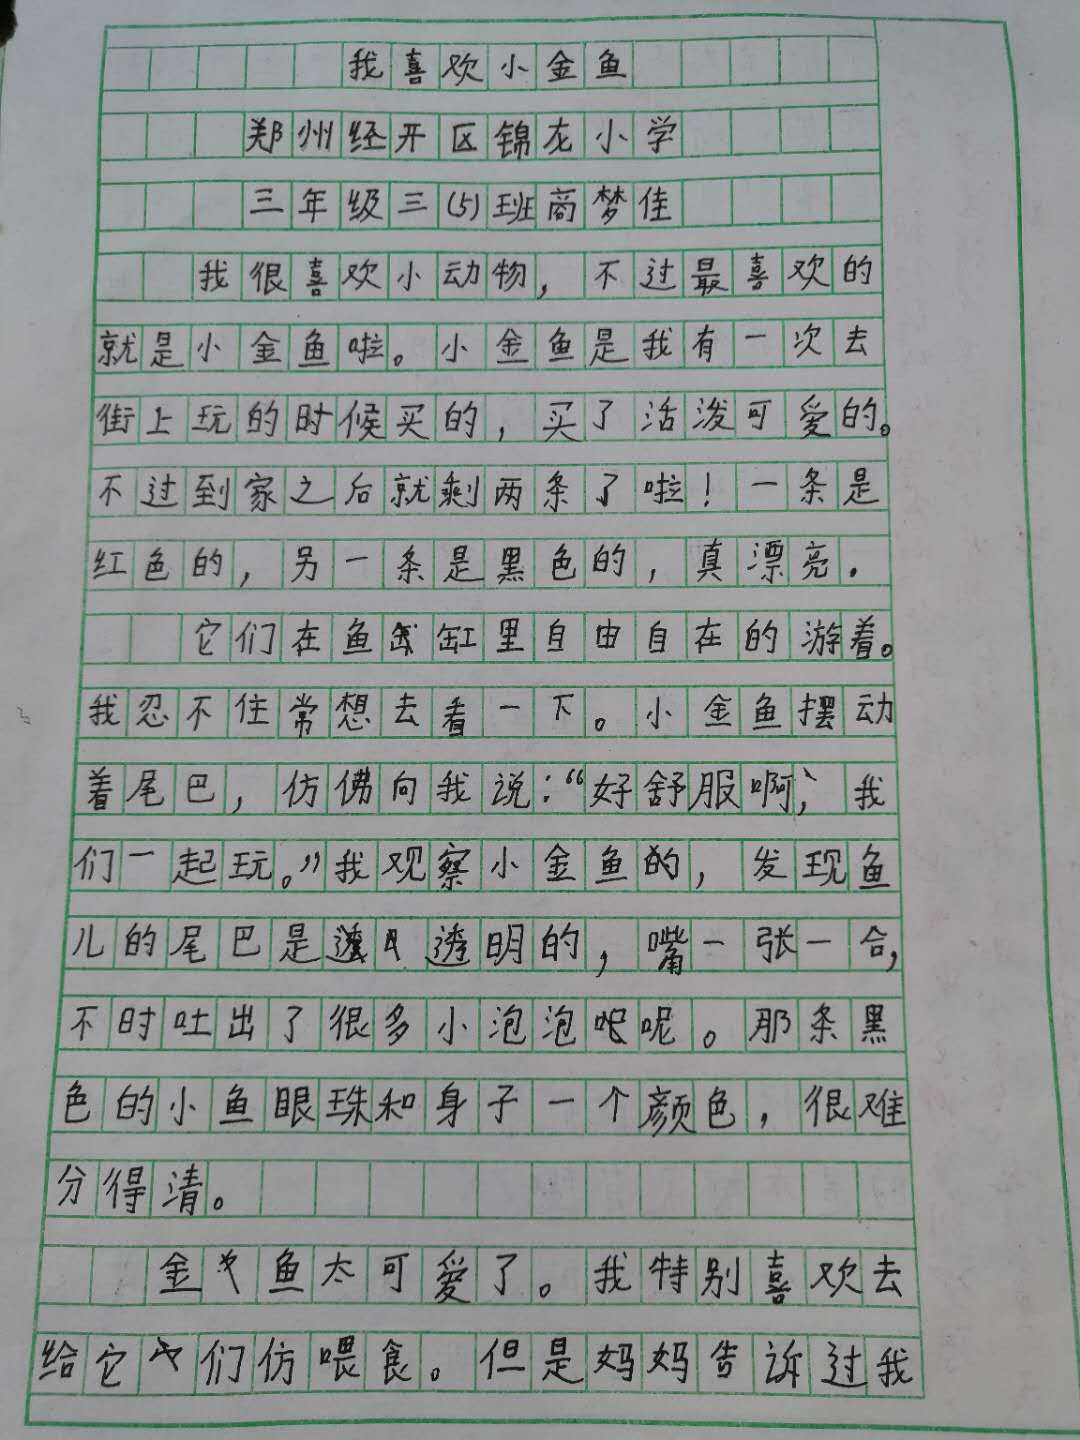 我喜欢小金鱼
郑州经开区锦龙小学
三年级三(5)班商梦佳
我很喜欢小动物，不过最喜欢的
就是小金鱼啦。小金鱼是我有一次去
街上玩的时候买的，买了活泼可爱的。
不过到家之后就剩两条了啦！一条是
红色的，另一条是黑色的，真漂亮.
它们在鱼缸里自由自在的游着。
我忍不住常想去看一下。小金鱼摆动
着尾巴，仿佛向我说：“好舒服啊，我
们一起玩。”我观察小金鱼的，发现鱼
儿的尾巴是透明的，嘴一张一合，
不时吐出了很多小泡泡呢。那条黑
色的小鱼眼珠和身子一个颜色，很难
分得清。
金鱼太可爱了。我特别喜欢去
给它们仿喂食。但是妈妈告诉过我